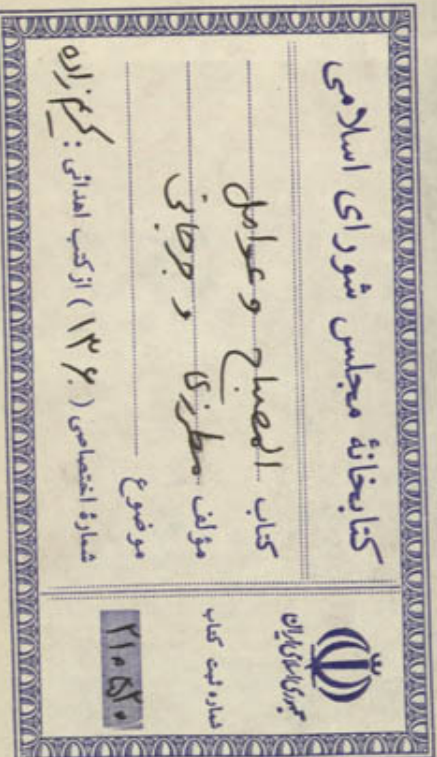 کتابخانهٔ مجلس شورای اسلامی
کتاب المصباح و عوامل
مؤلف مطرزی و جرجانی
موضوع
شمارهٔ اختصاصی ( ۱۳۶۰ ) از کتب اهدائی : کریم زاده
جمهوری اسلامی ایران
شماره ثبت کتاب
۲۱۰۵۲۰